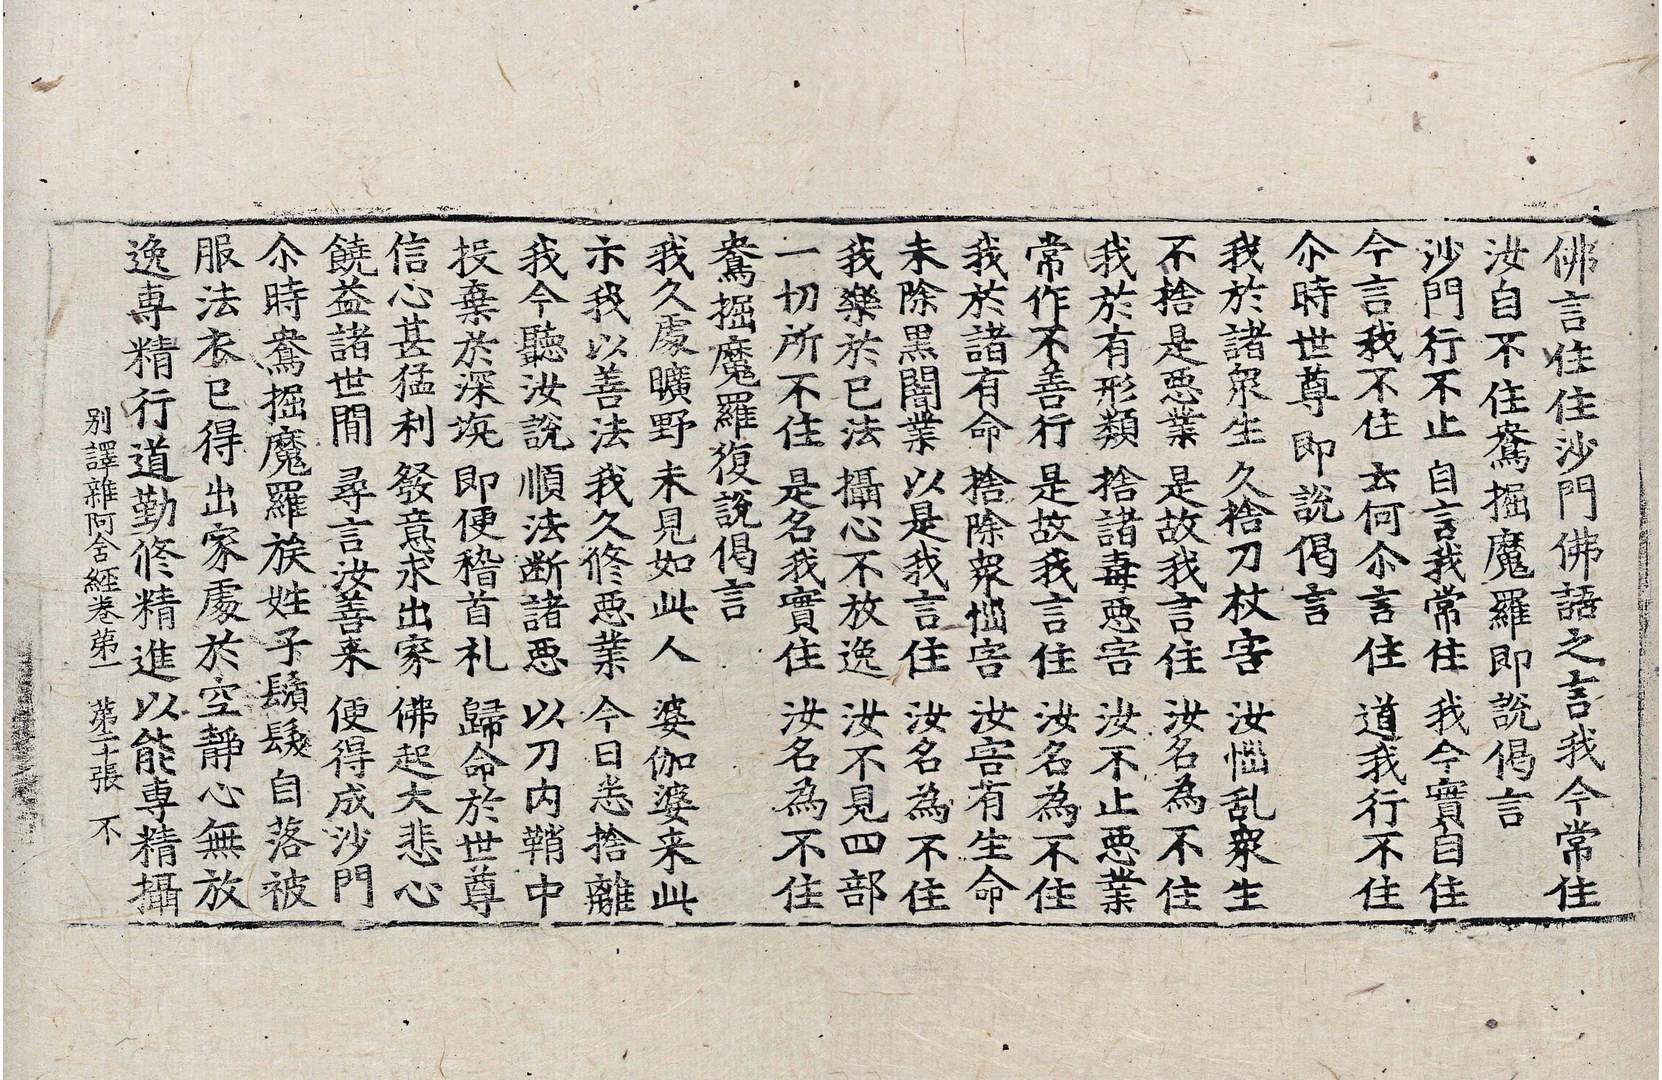 佛言住住沙門佛語之言我今常住
汝自不住鴦掘魔羅即說偈言
沙門行不止 自言我常住 我今實自住
今言我不住 云何尒言住 道我行不住
尒時世尊即說偈言
我於諸衆生 久捨刀杖害 汝惱乱衆生
不捨是惡業 是故我言住 汝名為不住
我於有形類 捨諸毒惡害 汝不止惡業
常作不善行 是故我言住 汝名為不住
我於諸有命 捨除衆惱害 汝害有生命
未除黑闇業 以是我言住 汝名為不住
我樂於已法 攝心不放逸 汝不見四部
一切所不住 是名我實住 汝名為不住
鴦掘魔羅復說偈言
我久處曠野 未見如此人 婆伽婆来此
示我以善法 我久修惡業 今日悉捨離
我今聽汝說 順法断諸惡 以刀内鞘中
投棄於深坑 即便稽首礼 歸命於世尊
信心甚猛利 發意求出家 佛起大悲心
饒益諸世間 尋言汝善来 便得成沙門
尒時鴦掘魔羅族姓子鬚髮自落被
服法衣已得出家處於空靜心無放
逸専精行道勤修精進以能専精攝
別譯雜阿舍經卷第一 第二十張 不